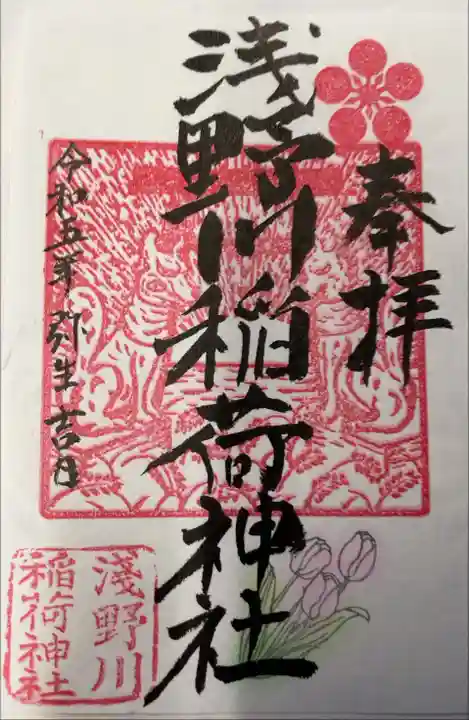 奉拝
浅野川稲荷神社
令和五年弥生吉日
淺野川
稲荷神社